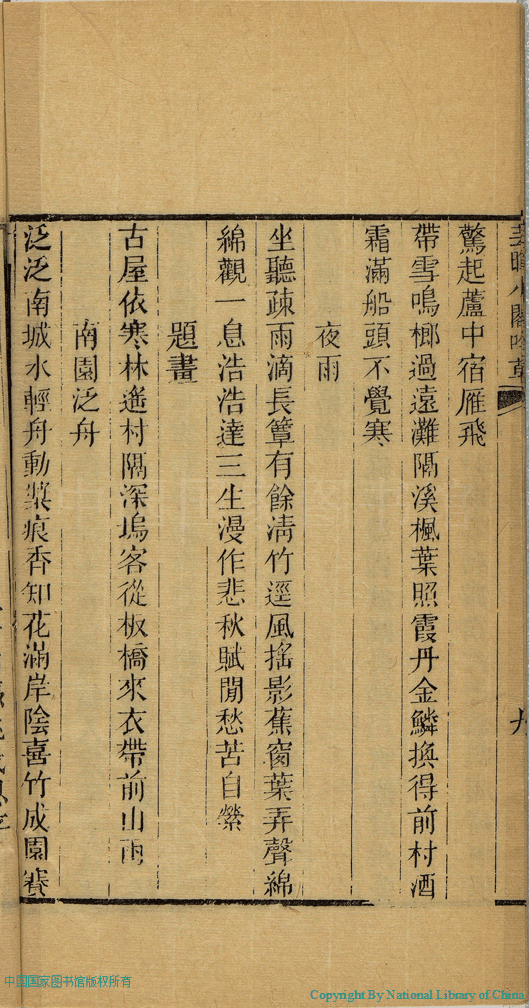 驚起蘆中宿雁飛
帶雪鳴榔過遠灘隔溪楓葉照霞丹金鱗換得前村酒
霜滿船頭不覺寒
夜雨
坐聽疎雨滴長簟有餘淸竹逕風搖影蕉窗葉弄聲綿
綿觀一息浩浩達三生漫作悲秋賦閒愁苦自縈
題畫
古屋依寒林遙村隔深塢客從板橋來衣帶前山雨
南園泛舟
泛泛南城水輕舟動槳痕香知花滿岸陰喜竹成園
中国国家图书馆版权所有
Copyright By National Library of China